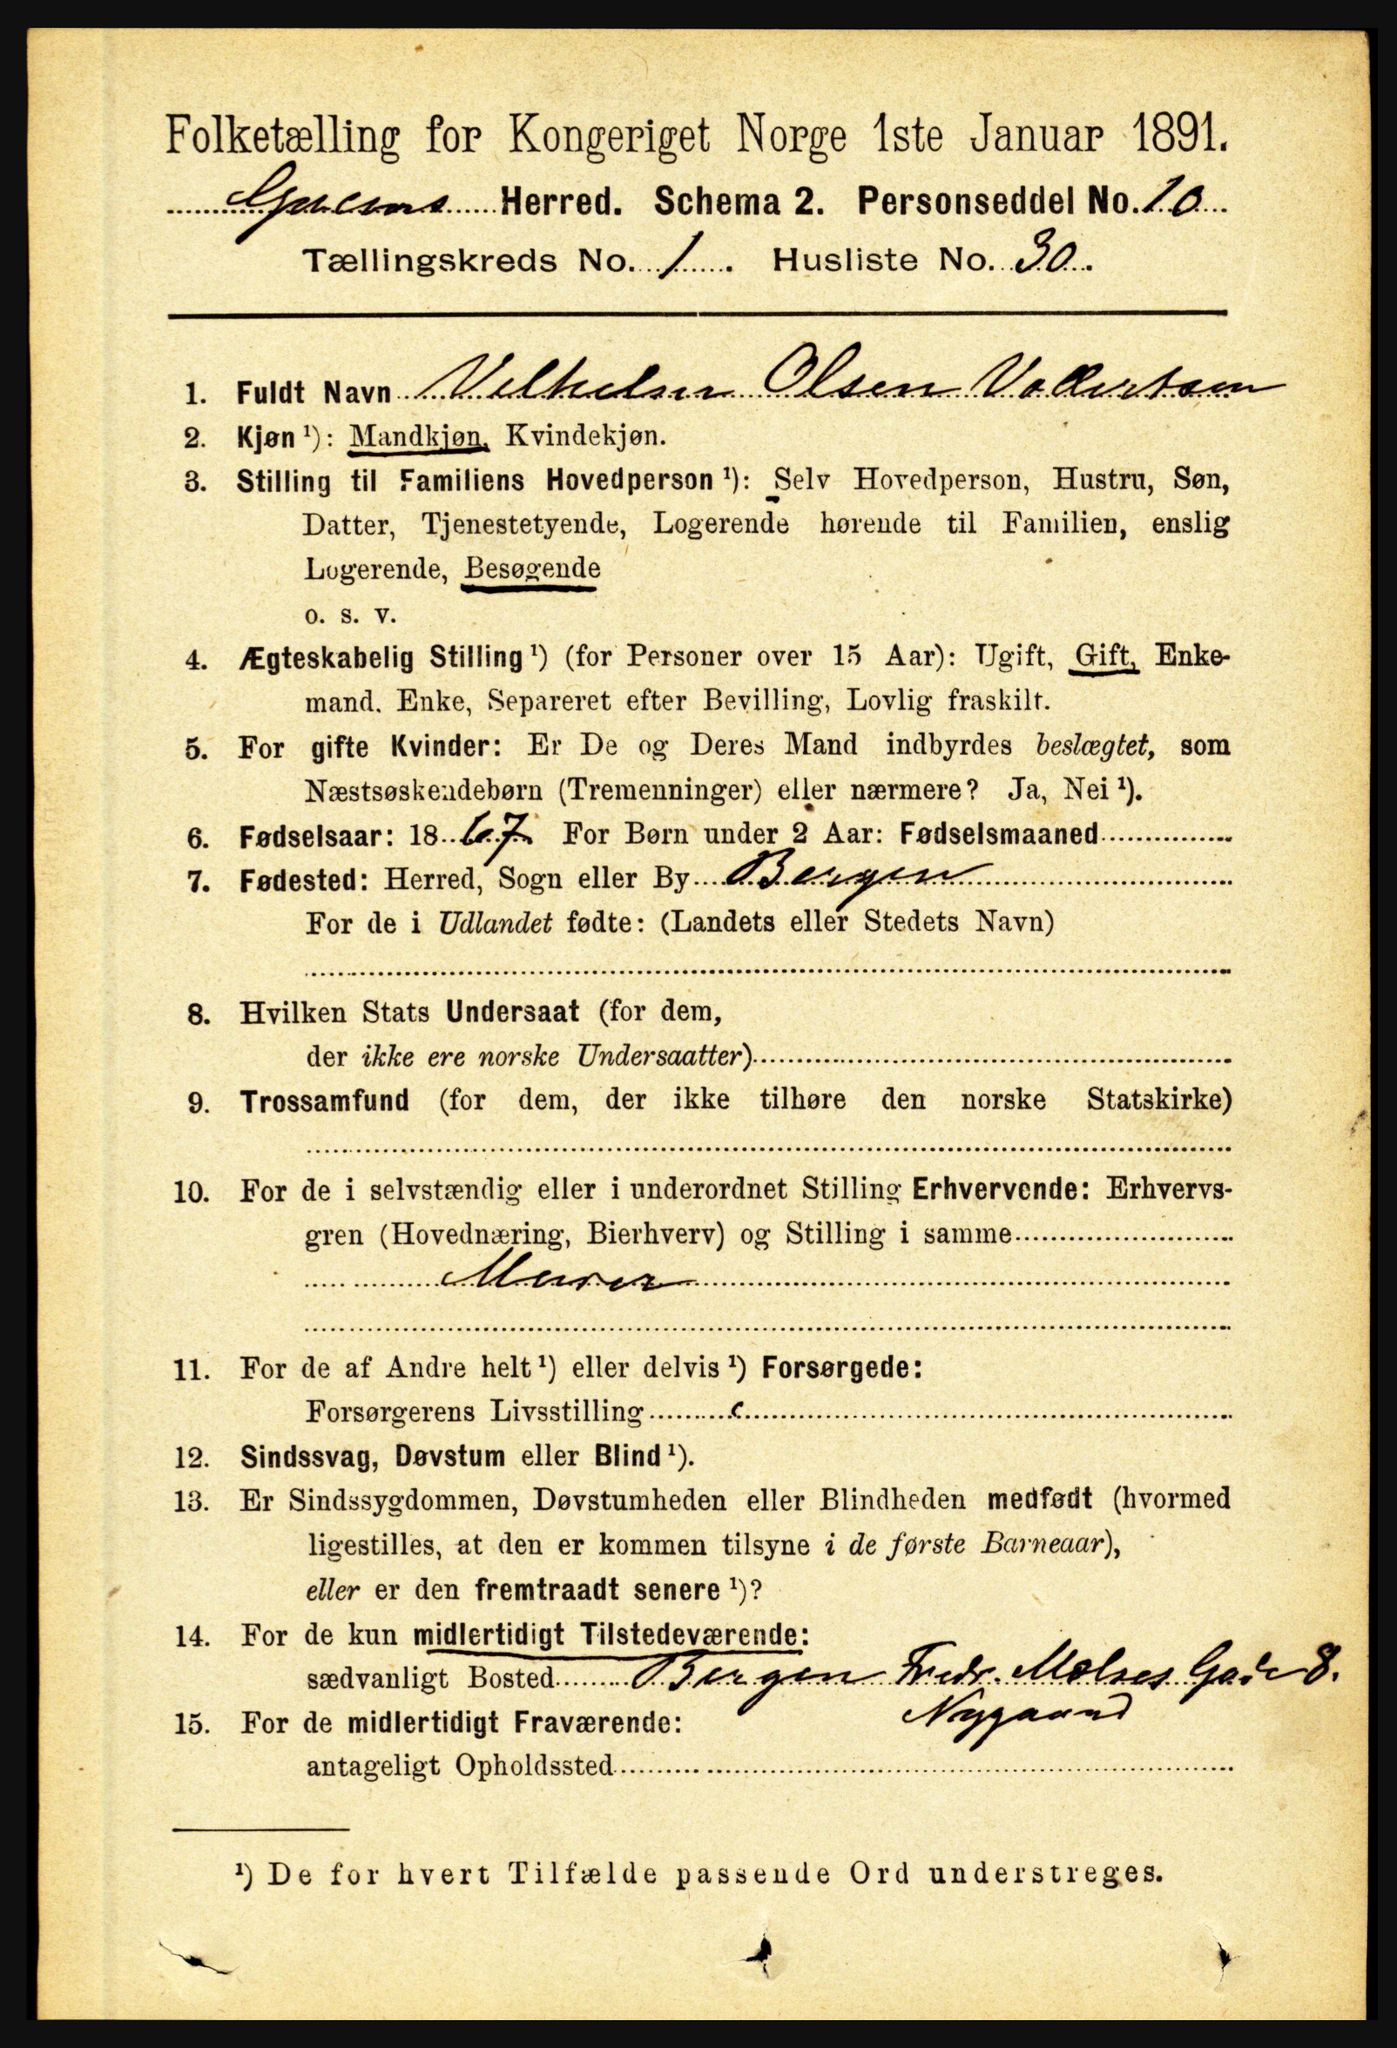 Folketælling for Kongeriget Norge 1ste Januar 1891.
Herred. Schema 2. Personseddel No. 10
Tællingskreds No. 1. Husliste No. 30.
1. Fuldt Navn Vilhelm Olsen
2. Kjøn ¹): Mandkjøn, Kvindekjøn.
3. Stilling til Familiens Hovedperson ¹): Selv Hovedperson, Hustru, Søn,
Datter, Tjenestetyende, Logerende hørende til Familien, enslig
Logerende, Besøgende
o. s. v.
4. Ægteskabelig Stilling ¹) (for Personer over 15 Aar): Ugift, Gift, Enke-
mand, Enke, Separeret efter Bevilling, Lovlig fraskilt.
5. For gifte Kvinder: Er De og Deres Mand indbyrdes beslægtet, som
Næstsøskendebørn (Tremenninger) eller nærmere? Ja, Nei ¹).
6. Fødselsaar: 1867 For Børn under 2 Aar: Fødselsmaaned
7. Fødested: Herred, Sogn eller By Bergen
For de i Udlandet fødte: (Landets eller Stedets Navn)
8. Hvilken Stats Undersaat (for dem,
der ikke ere norske Undersaatter)
9. Trossamfund (for dem, der ikke tilhøre den norske Statskirke)
10. For de i selvstændig eller i underordnet Stilling Erhvervende: Erhvervs-
gren (Hovednæring, Bierhverv) og Stilling i samme
Murer
11. For de af Andre helt ¹) eller delvis ¹) Forsørgede:
Forsørgerens Livsstilling c
12. Sindssvag, Døvstum eller Blind ¹).
13. Er Sindssygdommen, Døvstumheden eller Blindheden medfødt (hvormed
ligestilles, at den er kommen tilsyne i de første Barneaar),
eller er den fremtraadt senere ¹)?
14. For de kun midlertidigt Tilstedeværende:
sædvanligt Bosted Bergen Fredr. Mølses Gade 8.
Nygaard
15. For de midlertidigt Fraværende:
antageligt Opholdssted
¹) De for hvert Tilfælde passende Ord understreges.